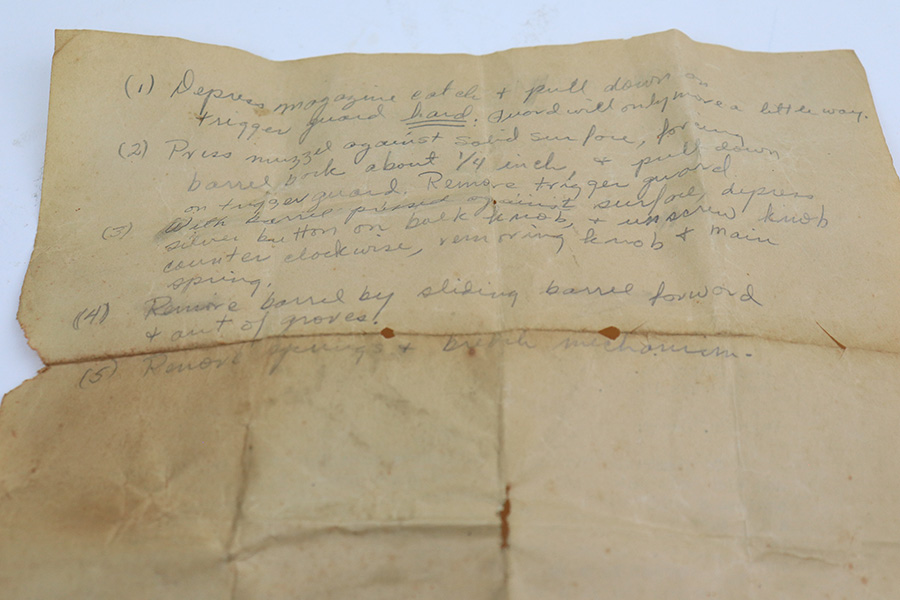 (1) Depress magazine catch + pull down on
trigger guard hard. Guard will only move a little way.
(2) Press muzzel against solid surface, forcing
barrel back about 1/4 inch, + pull down
on trigger guard. Remove trigger guard
(3) With barrel pressed against surface, depress
silver button on back knob, + unscrew knob
counter clockwise, removing knob + main
spring.
(4) Remove barrel by sliding barrel forward
+ out of groves.
(5) Remove springs + breech mechanism.